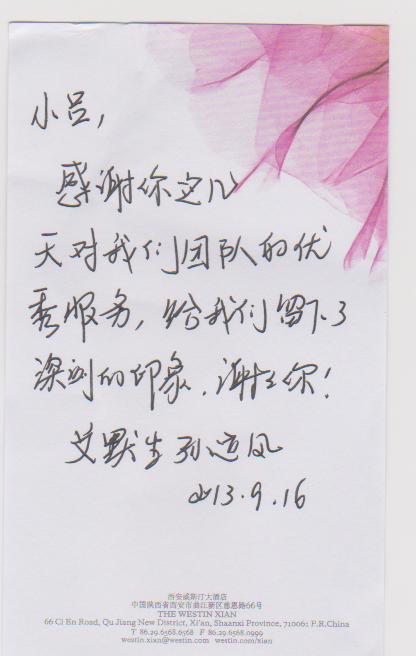 小吕，
感谢你这几
天对我们团队的优
秀服务，给我们留下了
深刻的印象，谢谢你！
艾默生 孙道风
2013.9.16
西安威斯汀大酒店
中国陕西省西安市曲江新区慈恩路66号
THE WESTIN XIAN
66 Ci En Road, Qu Jiang New District, Xi'an, Shaanxi Province, 710061 P.R.China
T 86.29.6568.6568 F 86.29.6568.0999
westin.xian@westin.com westin.com/xian